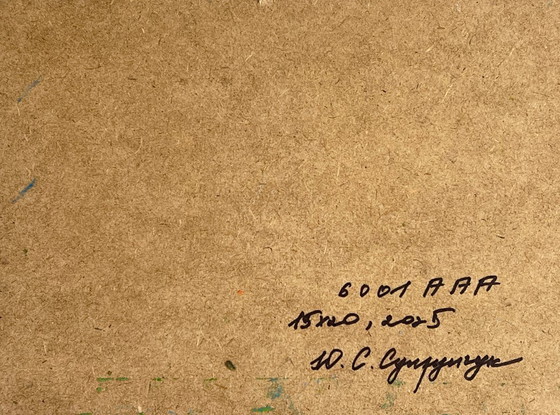 6001 AAA
15x20, 2025
Ю. С. Супрунчук